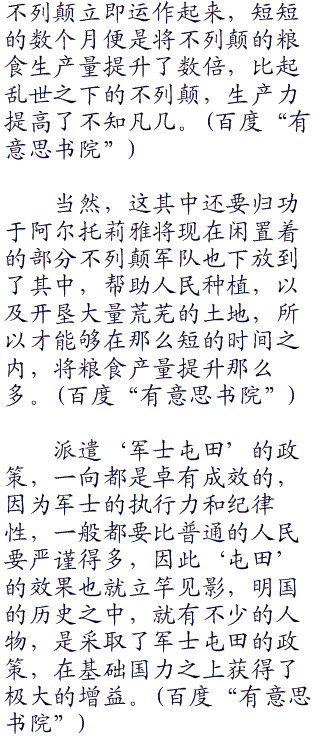 不列颠立即运作起来，短短
的数个月便是将不列颠的粮
食生产量提升了数倍，比起
乱世之下的不列颠，生产力
提高了不知凡几。(百度“有
意思书院”)
当然，这其中还要归功
于阿尔托莉雅将现在闲置着
的部分不列颠军队也下放到
了其中，帮助人民种植，以
及开垦大量荒芜的土地，所
以才能够在那么短的时间之
内，将粮食产量提升那么
多。(百度“有意思书院”)
派遣‘军士屯田’的政
策，一向都是卓有成效的，
因为军士的执行力和纪律
性，一般都要比普通的人民
要严谨得多，因此‘屯田’
的效果也就立竿见影，明国
的历史之中，就有不少的人
物，是采取了军士屯田的政
策，在基础国力之上获得了
极大的增益。(百度“有意思
书院”)